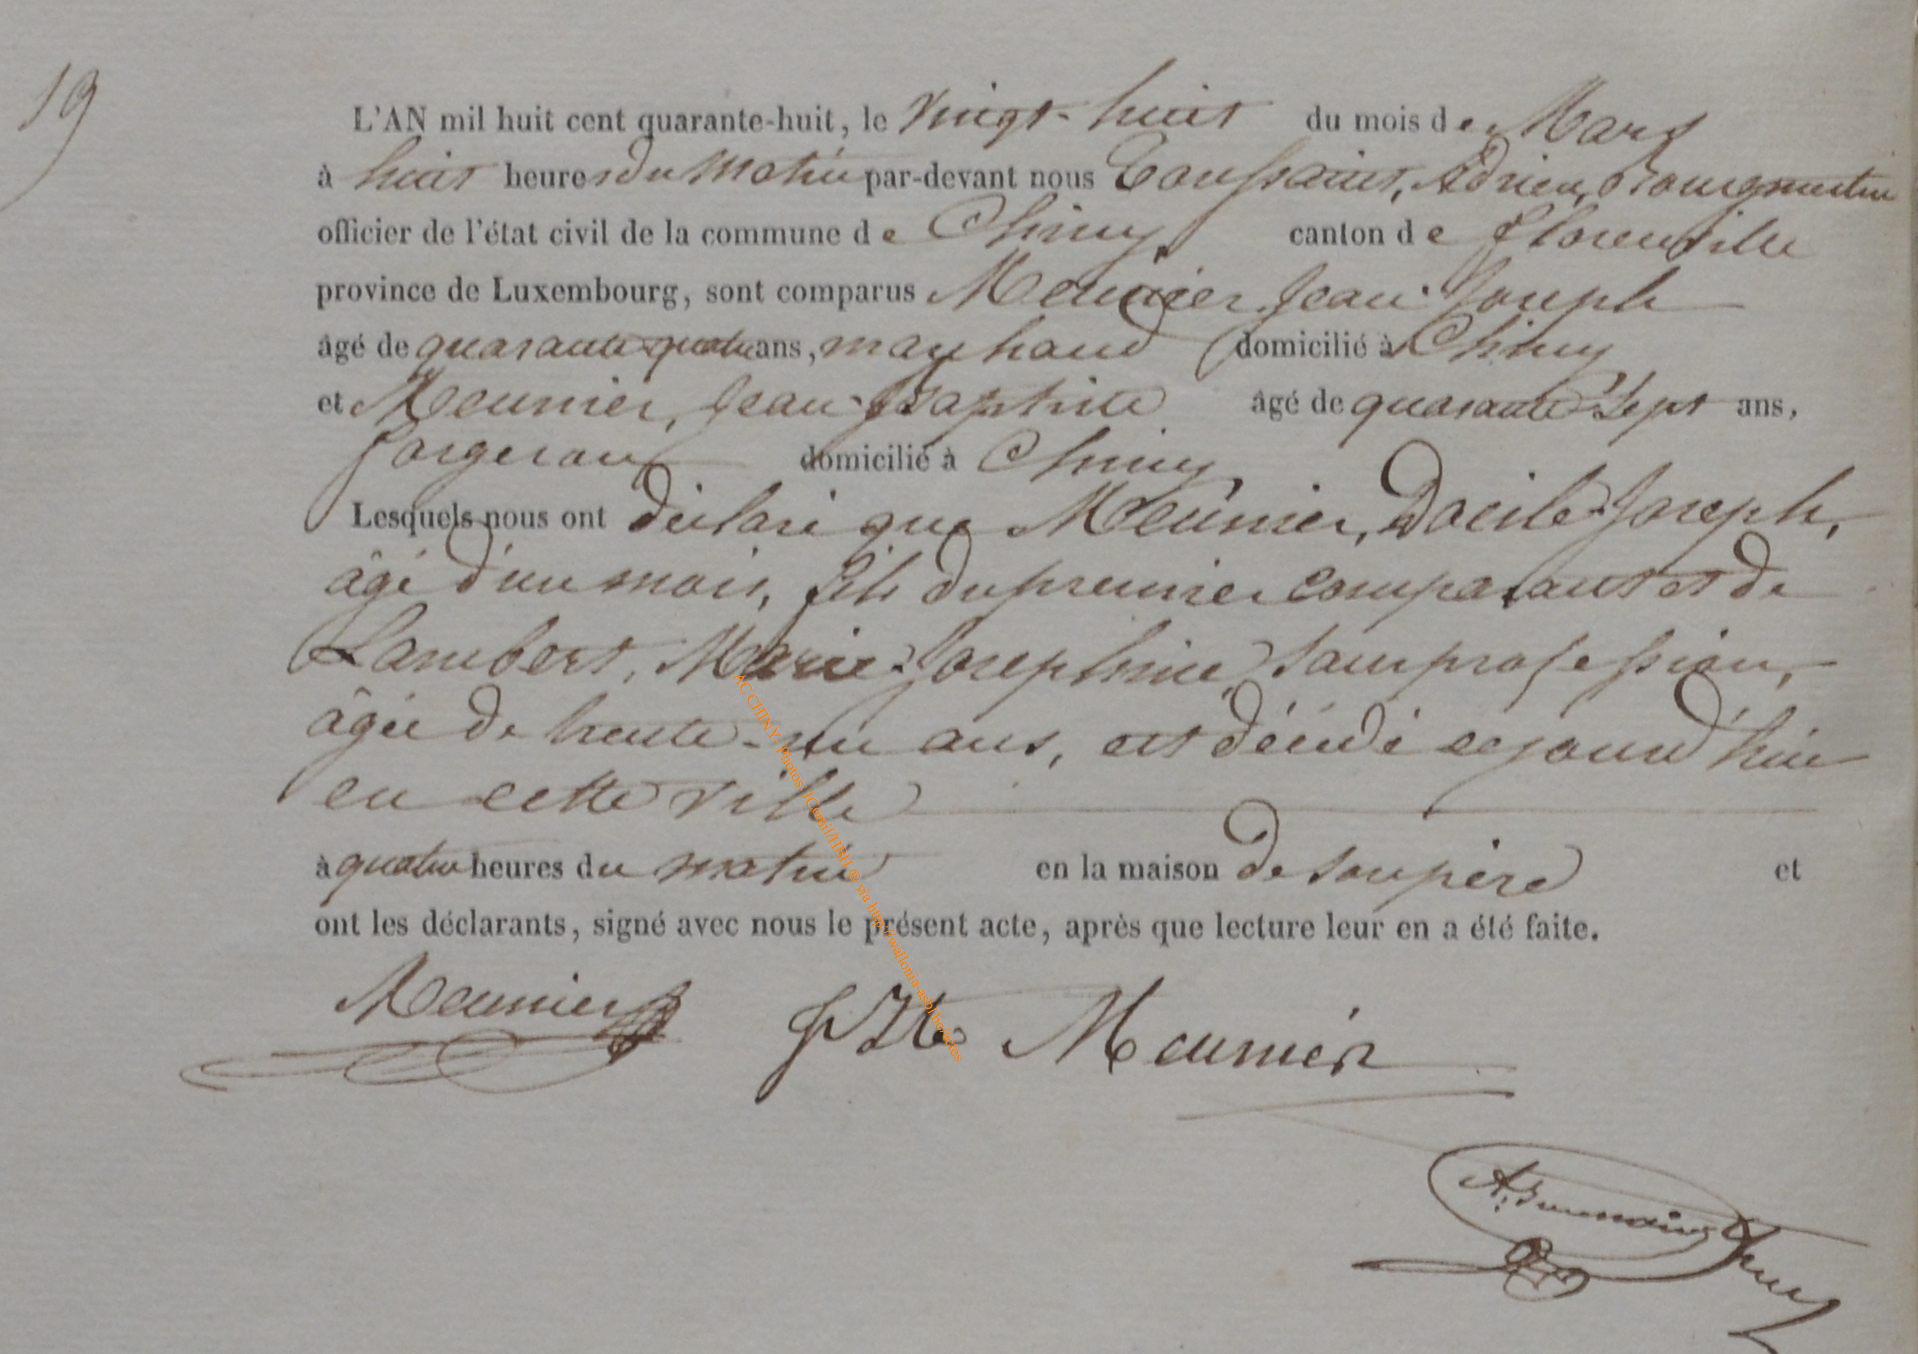 19
L'AN mil huit cent quarante-huit, le vingt-huit du mois de Mars
à huit heures du matin par-devant nous Toussaint, Adrien, Bourgmestre
officier de l'état civil de la commune de Chiny canton de florenville
province de Luxembourg, sont comparus Meunier Jean-Joseph
âgé de quarante-quatre ans, domicilié à Chiny
et Meunier, Jean-Baptiste âgé de quarante-sept ans,
forgeron domicilié à Chiny
Lesquels nous ont déclaré que Meunier, Docile-Joseph,
âgé d'un mois, fils du premier comparant et de
Lambert, Marie-Josephine, sans profession,
âgée de trente-un ans, est décédé cejourd'hui
en cette ville
à quatre heures du matin en la maison de son père et
ont les déclarants, signé avec nous le présent acte, après que lecture leur en a été faite.
Meunier J Bte Meunier